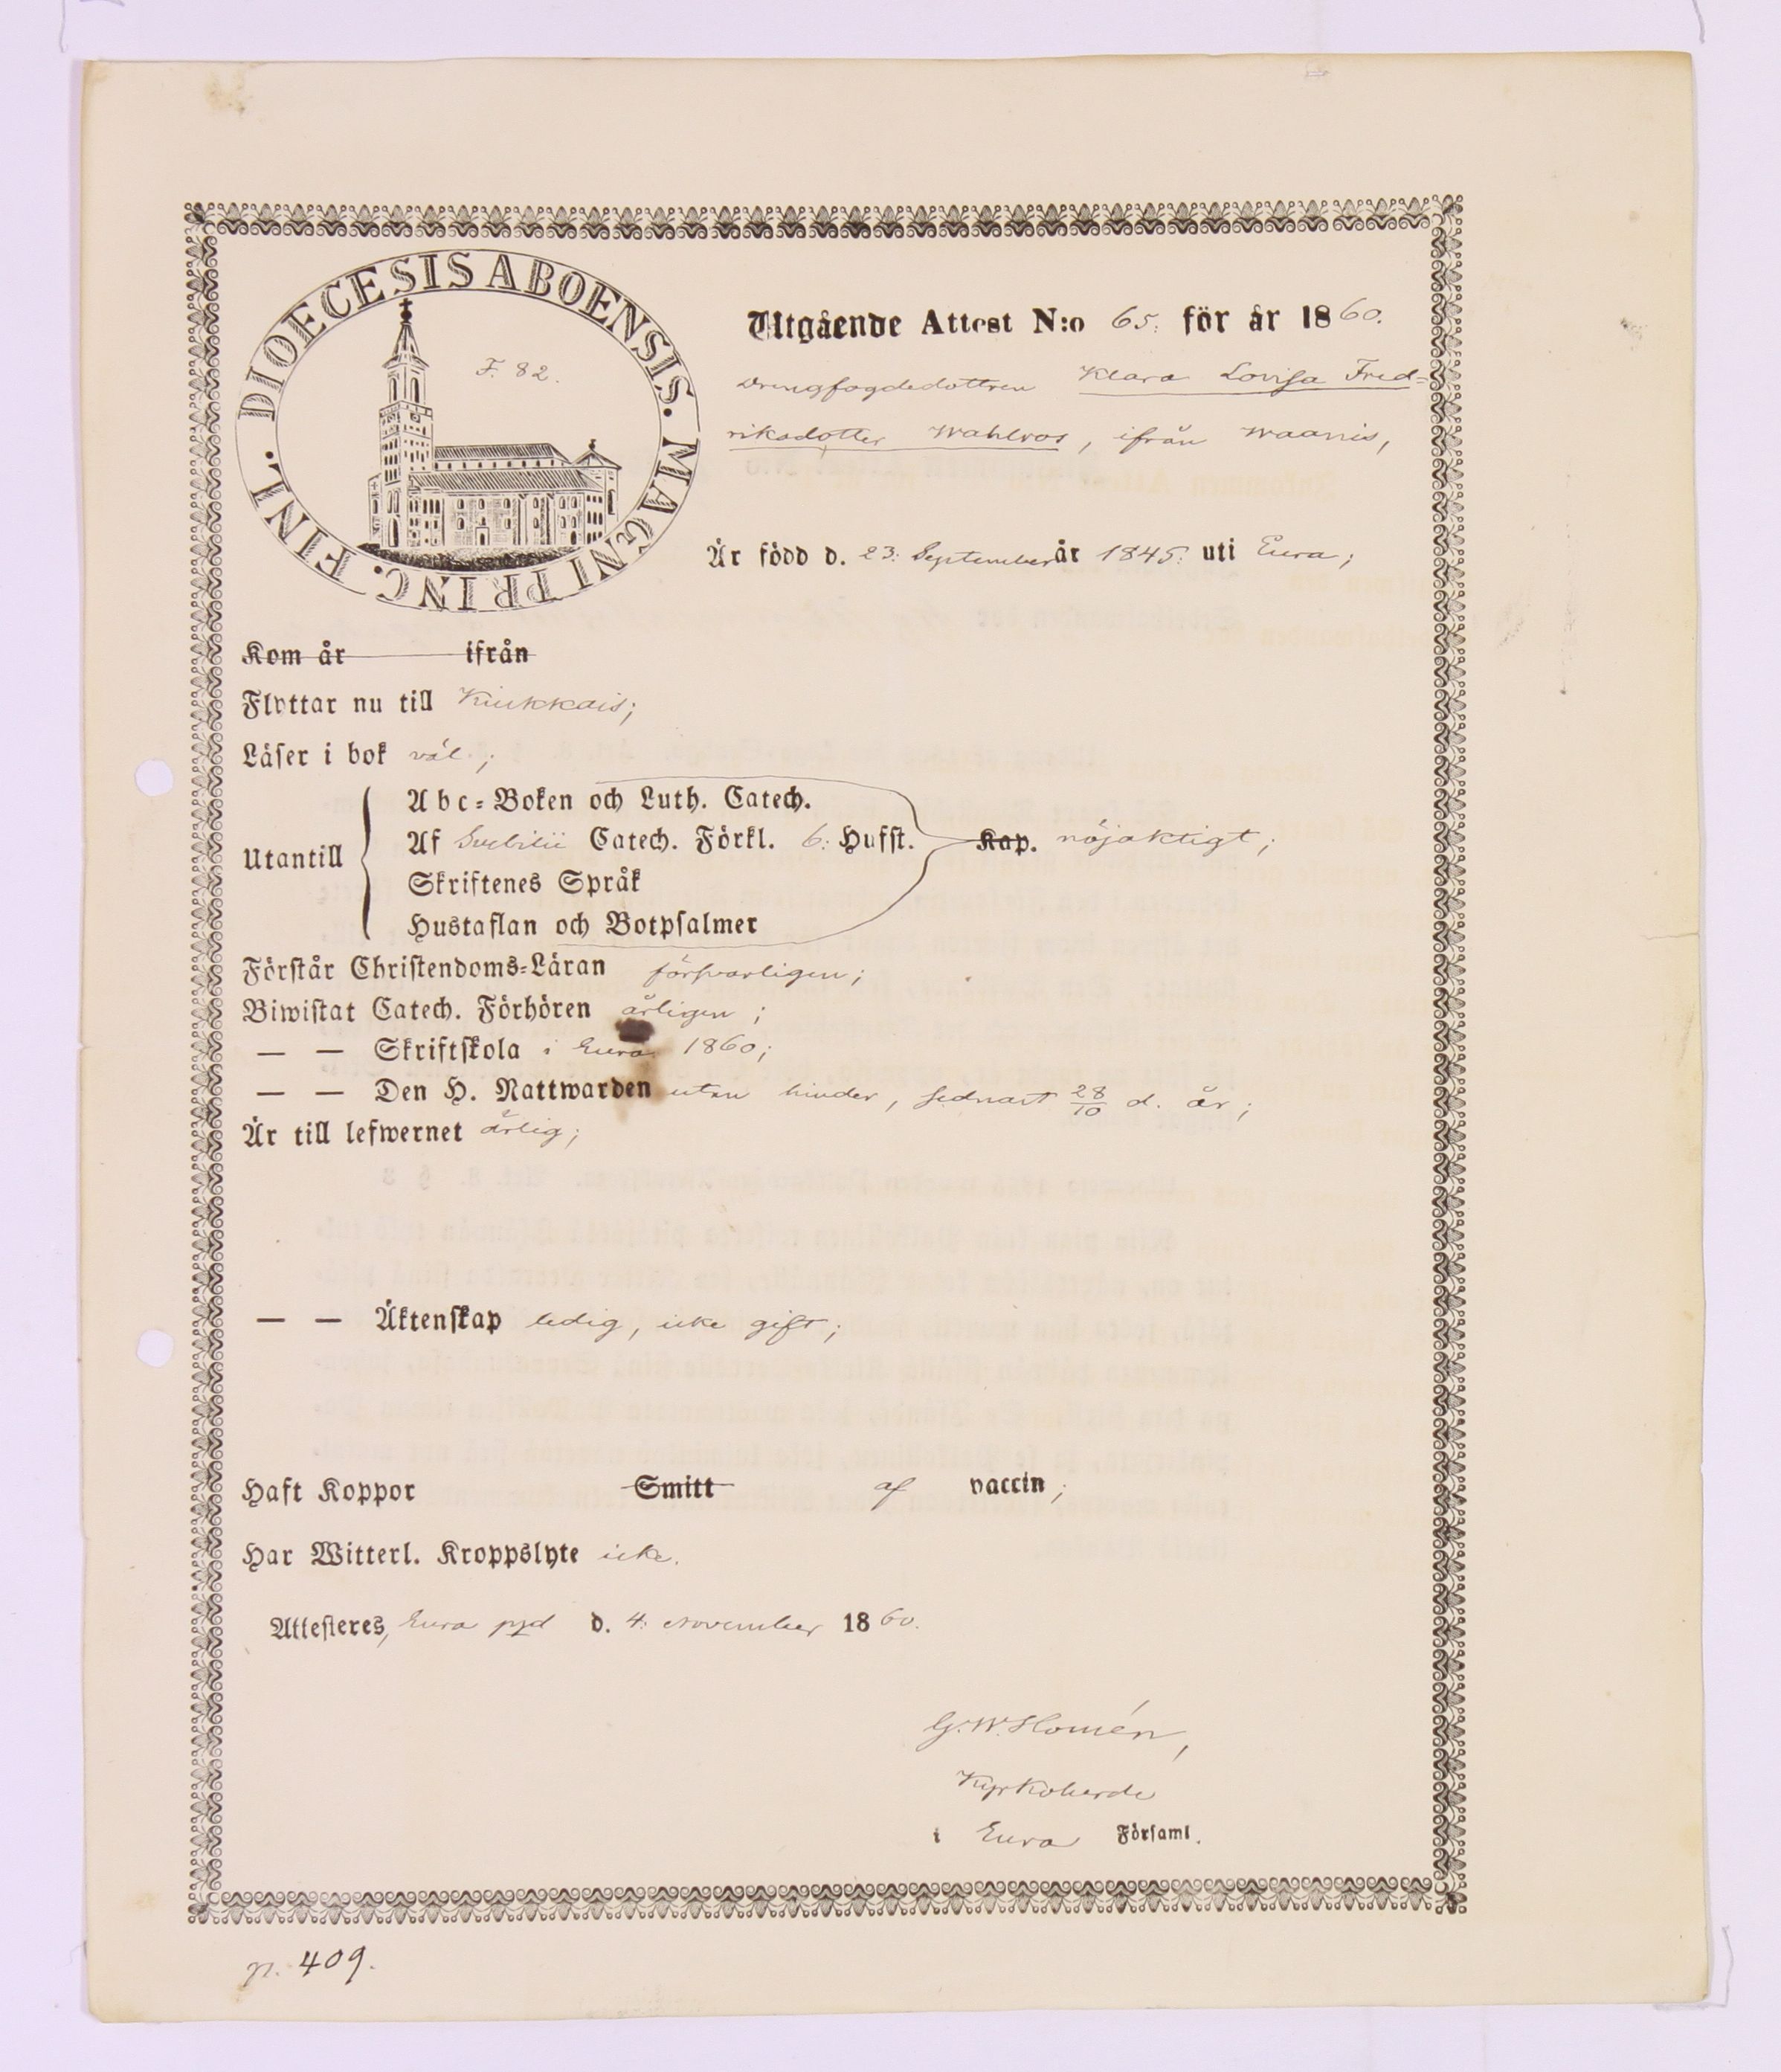 DIOECESIS ABOENSIS. MAGNI PRINC. FINL.
F. 82.
Utgående Attest N:o 65. för år 1860.
Drengfogdedottren Klara Lovisa Fred=
riksdotter Wahlros, ifrån Waanis,
Är född d. 23. September år 1845. uti Eura;
Kom år ifrån
Flyttar nu till Kiukkais;
Läser i bok väl.;
Utantill
Abc=Boken och Luth. Catech.
Af Svebilii Catech. Förkl. 6. Hufst. Kap. nöjaktigt;
Skriftenes Språk
Hustaflan och Botpsalmer
Förstår Christendoms=Läran försvarligen;
Biwistat Catech. Förhören årligen;
— — Skriftskola i Eura 1860;
— — Den H. Nattwarden utan hinder, sednast 28/10 d. år;
Är till lefwernet ärlig;
— — Äktenskap ledig, icke gift;
Haft Koppor Smitt af vaccin;
Har Witterl. Kroppslyte icke.
Attesteres, Eura pgd d. 4. November 1860.
G. W. Homén,
Kyrkoherde
i Eura Församl.
p. 409.